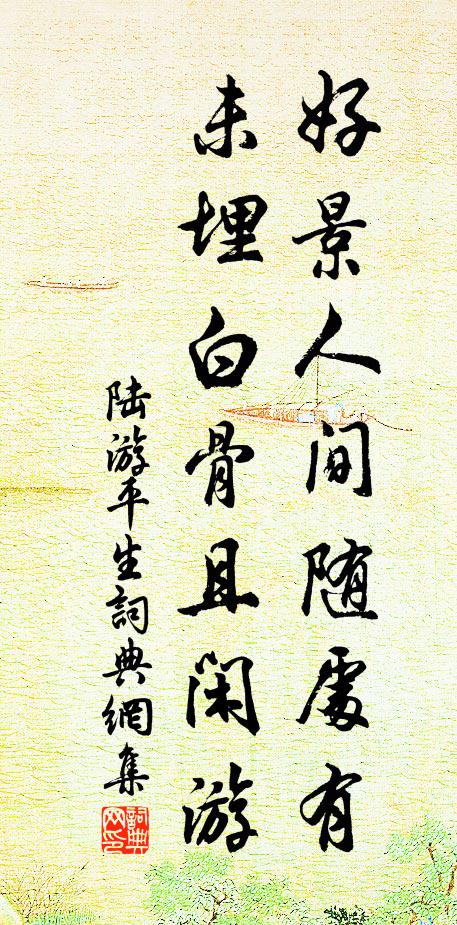 好景人间随處有
未埋白骨且闲游
陆游平生詞典網集
詞典网印